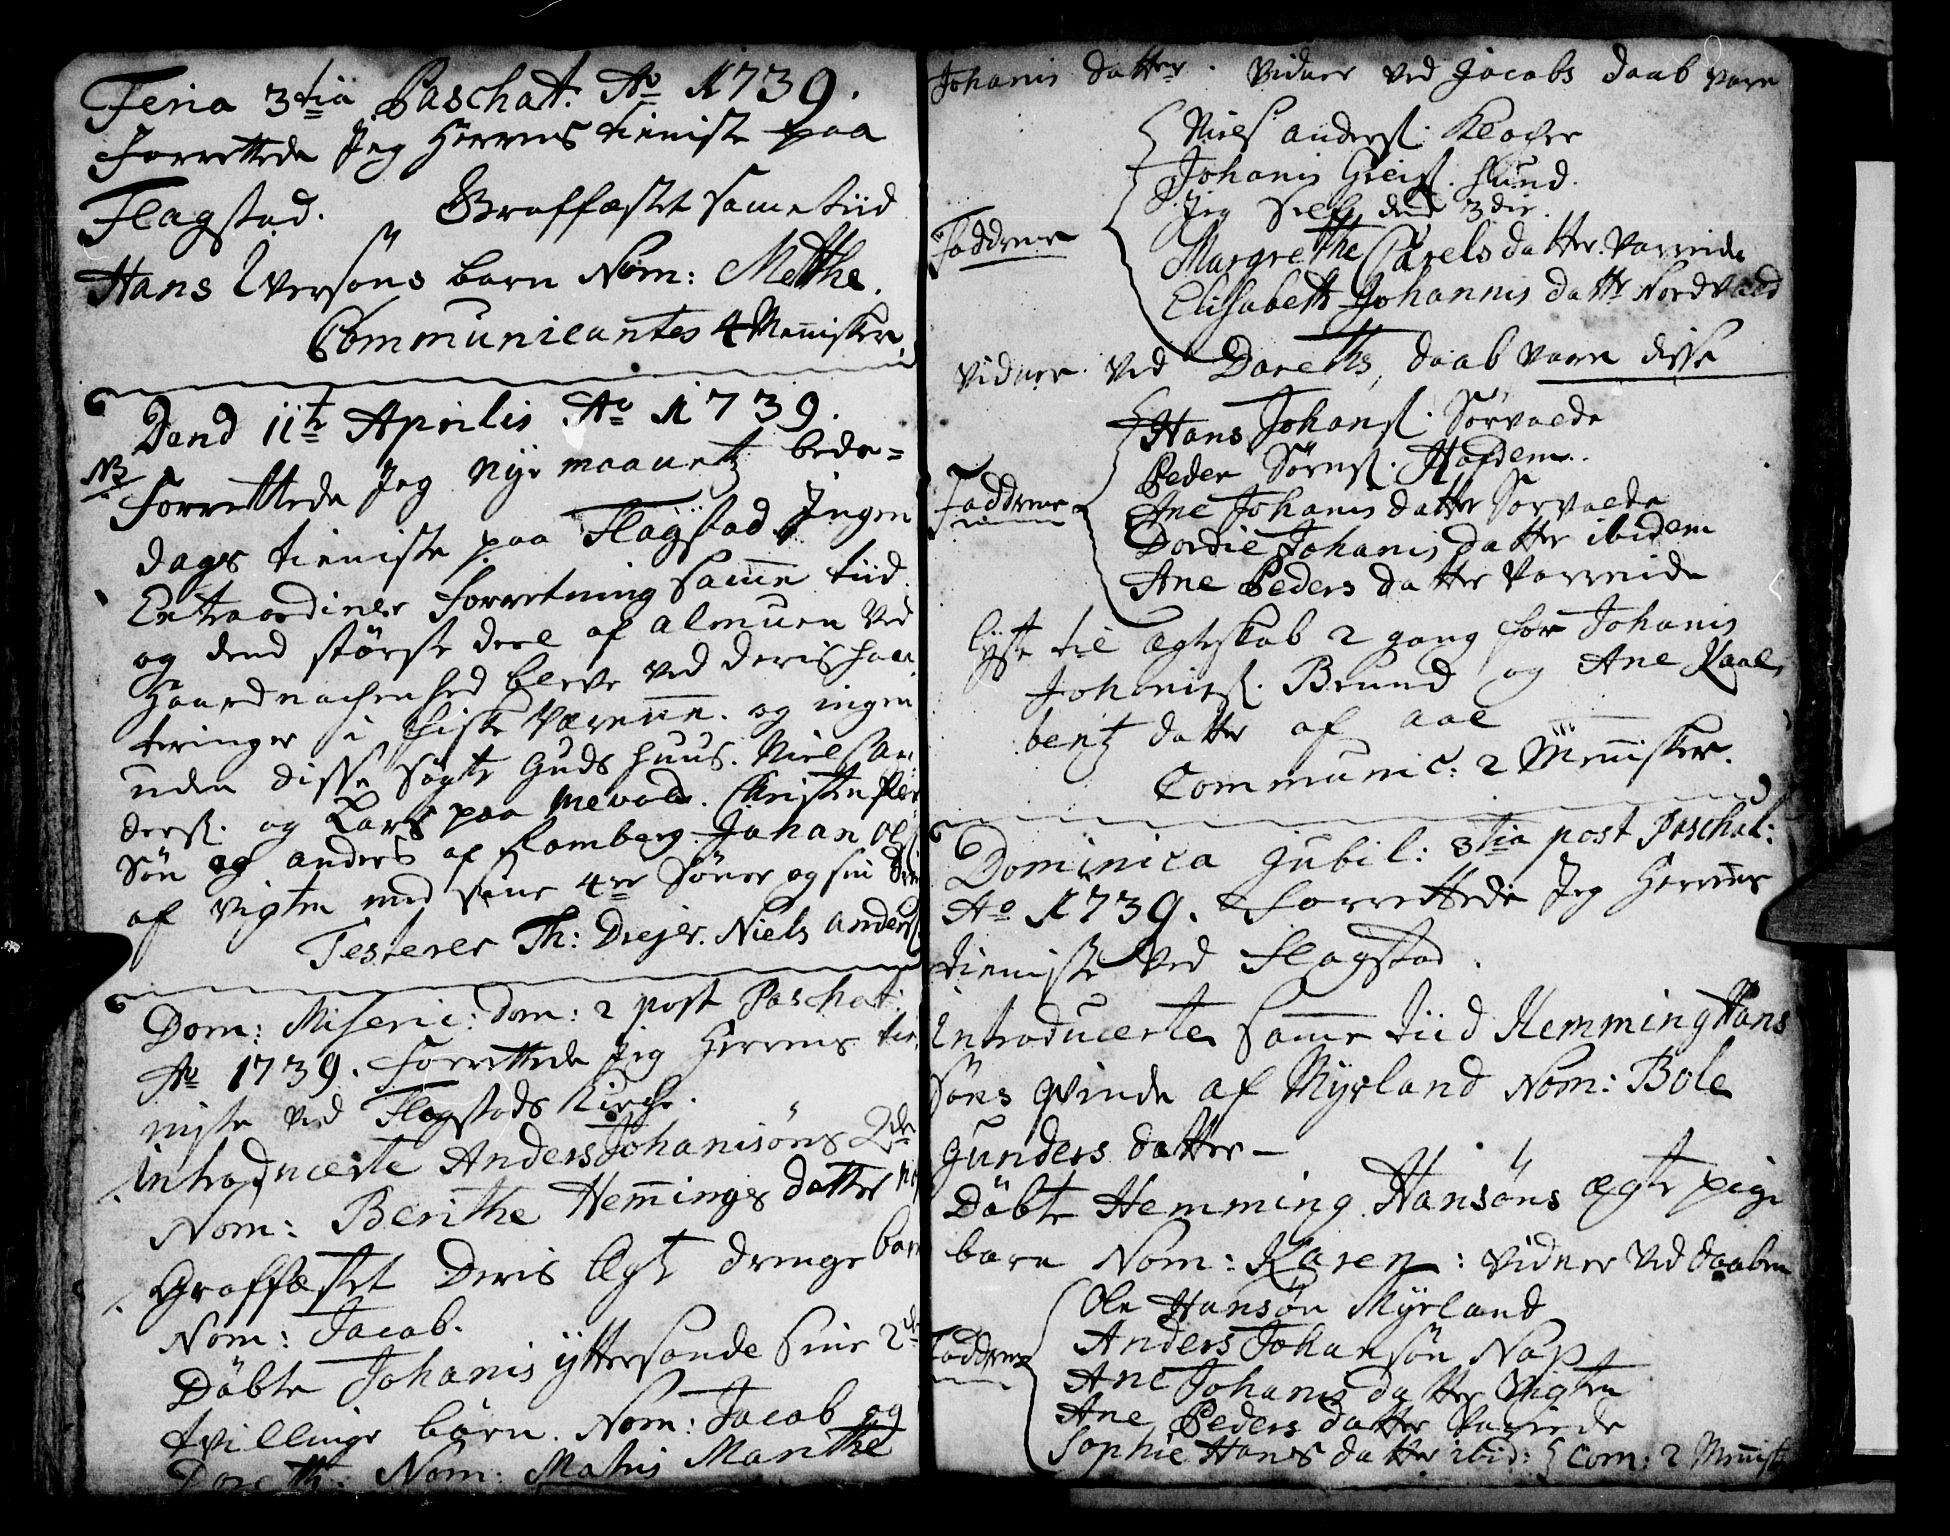 Feria 3tia Paschat: Ao 1739.
Forrettede Jeg Herrens tieniste paa
Flagstad. Graffæstet same tiid
Hans Iversøns barn Nom: Metthe.
Communicantes 4 Mennisker.
Dend 11te Aprilis Ao 1739.
NB
Forrettede Jeg Nye maanetz bede=
dags tieniste paa Flagstad Ingen
Extraordiner Forretning same tiid
og dend störste deel af almuen ved
Haardnachenhed bleve ved deris han
teringer i fiske Værene. og ingen
uden disse søgte Guds huus. Niels An
ders: og Lars paa Nevold. Christen Peder
Søn og anders af Ramberg. Johan Ols
af Vigten med sine 4re Sønner og sin
Testerer Th: Drejer. Niels Anders
Dom: Miseric: dom: 2 post Paschat:
Ao 1739. Forrettede Jeg Herrens tie
niste ved Flagstads Kirche.
Introducerte Anders Johanisøns
Nom: Berithe Hemmings datter
Graffæstet Deris Ægte drenge barn
Nom: Jacob.
Døbte Johanis yttersande sine 2de
tvillinge børn. Nom: Jacob og
Doreth: Nom: Matris Marithe
Johanis datter. Vidner ved Jacobs daab vare
Niels anders: Klocher
Johanis Greis: Sund.
Jeg self dend 3die.
Faddrene
Margrethe Carelsdatter Varreide
Elisabeth Johannis datter Nordvaed
Vidner ved Doreths, daab vare disse
Hans Johans: Sörvaede
Peder Sörns:
Faddrene
Ane Johanis datter Sörvaede
Dordie Johanis datter ibidem
Ane Peders datter Varreide
lyste til Ægteskab 2 gang for Johanis
Johanis: Brund og Ane Kaal
bentz datter af aae
Communic: 2 Mennisker.
Dominica Jubil: 3tia post Paschat:
Ao 1739. Forrettede Jeg Herrens
tieniste ved Flagstad.
Introducerte same tiid Hemming Hans
Søns qvinde af Myrland Nom: Bole
Gunders datter—
Døbte Hemming Hansøns ægte pige
barn Nom: Karen: vidner ved daaben
Ole Hansøn Myrland
Anders Johansøn Nap
Faddrene
Ane Johanis datter Vigten
Ane Peders datter Varreide
Sophie Hans datter ibid: Com: 2 Mennisk